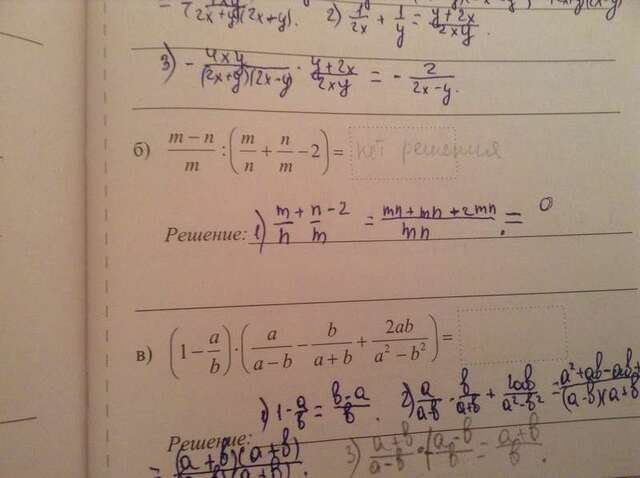 = (4xy / (2x+y)(2x+y). 2) 1/2x + 1/y = y+2x / 2xy.
3) - 4xy / (2x+y)(2x-y) · y+2x / 2xy = - 2 / 2x-y.
б) m – n / m : (m/n + n/m – 2) = нет решения
Решение: 1) m/n + n/m - 2 = mn+mn+2mn / mn. = 0
в) (1 – a/b) · (a / a – b – b / a + b + 2ab / a² – b²) =
1) 1 - a/b = b-a / b. 2) a / a-b - b / a+b + 2ab / a²-b² = a²+ab-ab+ / (a-b)(a+b
Решение:
= (a+b)(a+b) 3) a+b / a-b · (a-b / b = a+b / b.